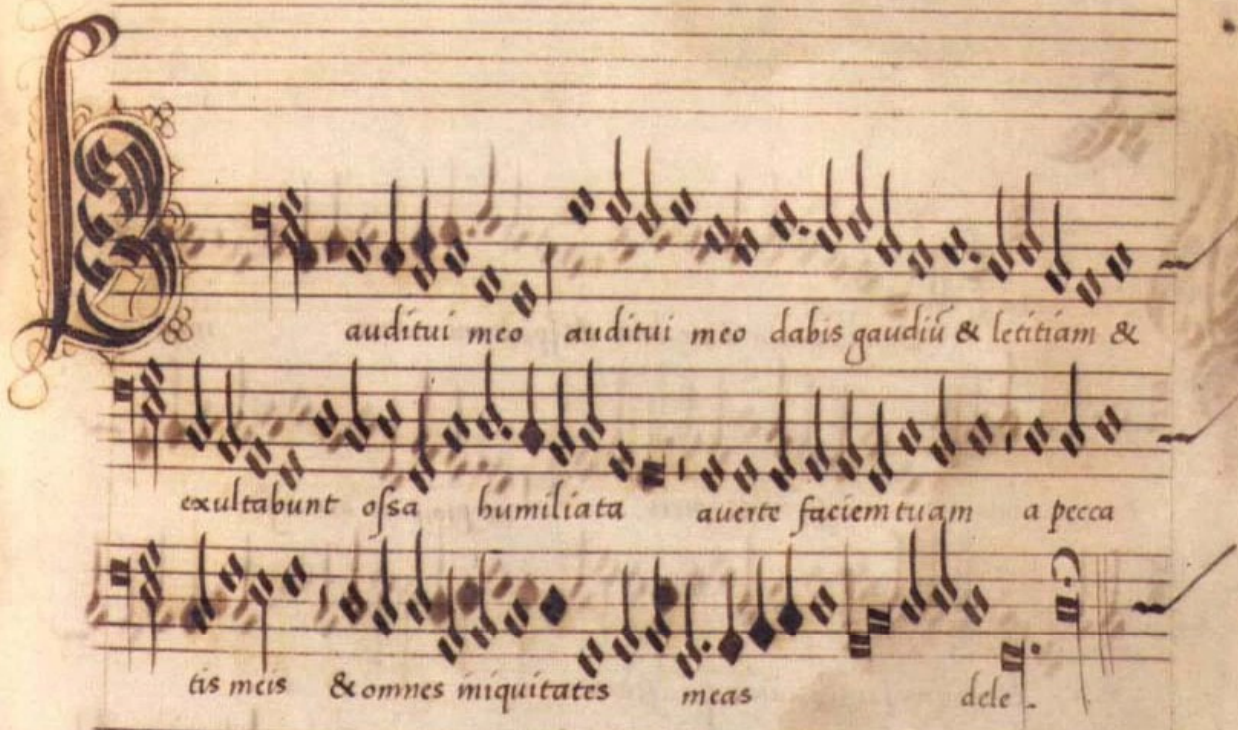 auditui meo auditui meo dabis gaudiū & letitiam &
exultabunt ossa humiliata auerte faciem tuam a pecca
tis meis & omnes iniquitates meas dele.